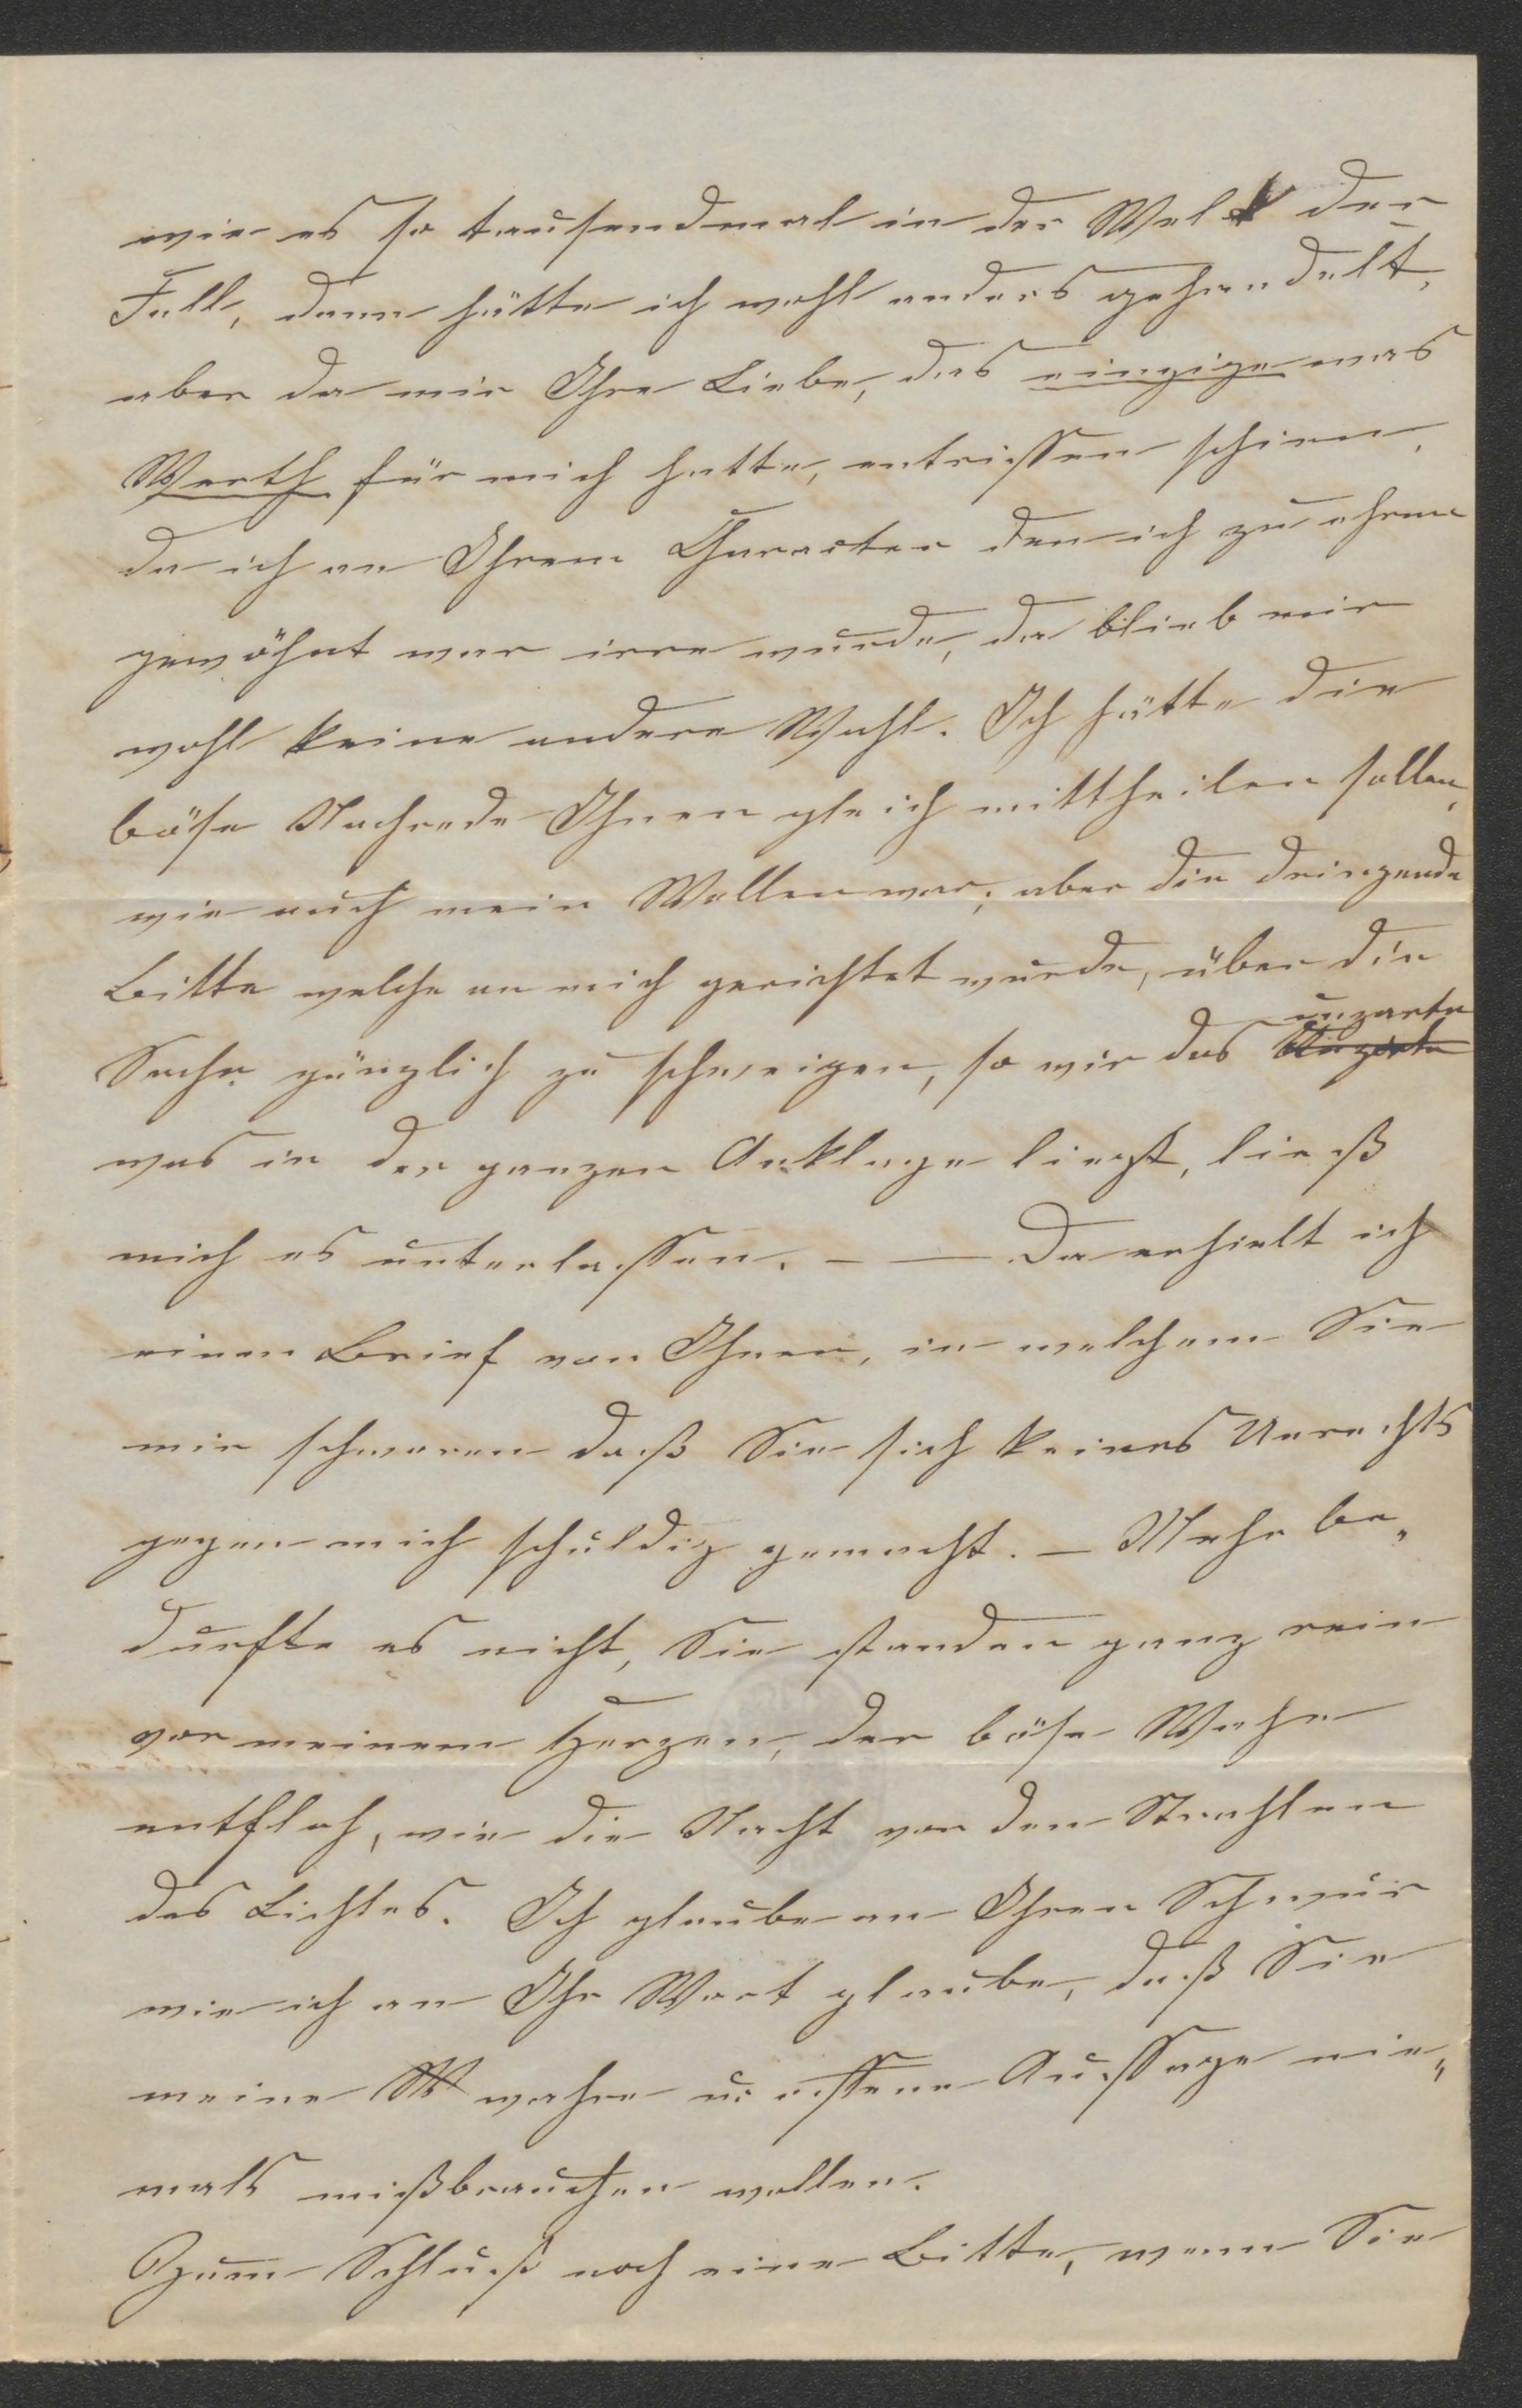 wie es so tausendmal in der Welt der
Fall, dann hätte ich wohl anders gehandelt,
aber da mir Ihre Liebe, das einzige was
Werth für mich hatte, entrissen schien,
da ich an Ihrem Character den ich zu ehren
gewöhnt war irre wurde, da blieb mir
wohl keine andere Wahl. Ich hätte die
böse Nachrede Ihnen gleich mittheilen sollen,
wie auch mein Wollen war; aber die dringende
Bitte welche an mich gerichtet wurde, über die
unzarte
Sache gänzlich zu schweigen, so wie das Unzarte
was in der ganzen Anklage liegt, ließ
mich es unterlassen. – — Da erhielt ich
einen Brief von Ihnen, in welchem Sie
mir schworen daß Sie sich keines Unrechts
gegen mich schuldig gemacht. — Mehr be„
durfte es nicht, Sie standen ganz rein
vor meinem Herzen, der böse Wahn
entfloh, wie die Nacht vor den Strahlen
des Lichtes. Ich glaube an Ihren Schwur
wie ich an Ihr Wort glaube, daß Sie
meine W wahre u: offene Aussage nie„
mals mißbrauchen wollen.
Zum Schluß noch eine Bitte, wenn Sie